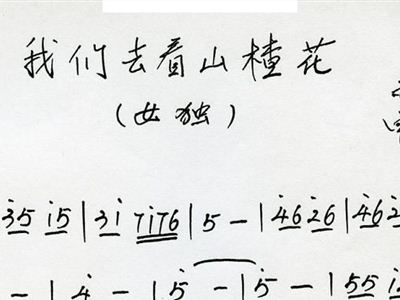 我们去看山楂花
(女独)
35 i5 | 3i 7i76 | 5 - | 46 26 | 462
- | 4 - | 5 - | 5 - | 55 i